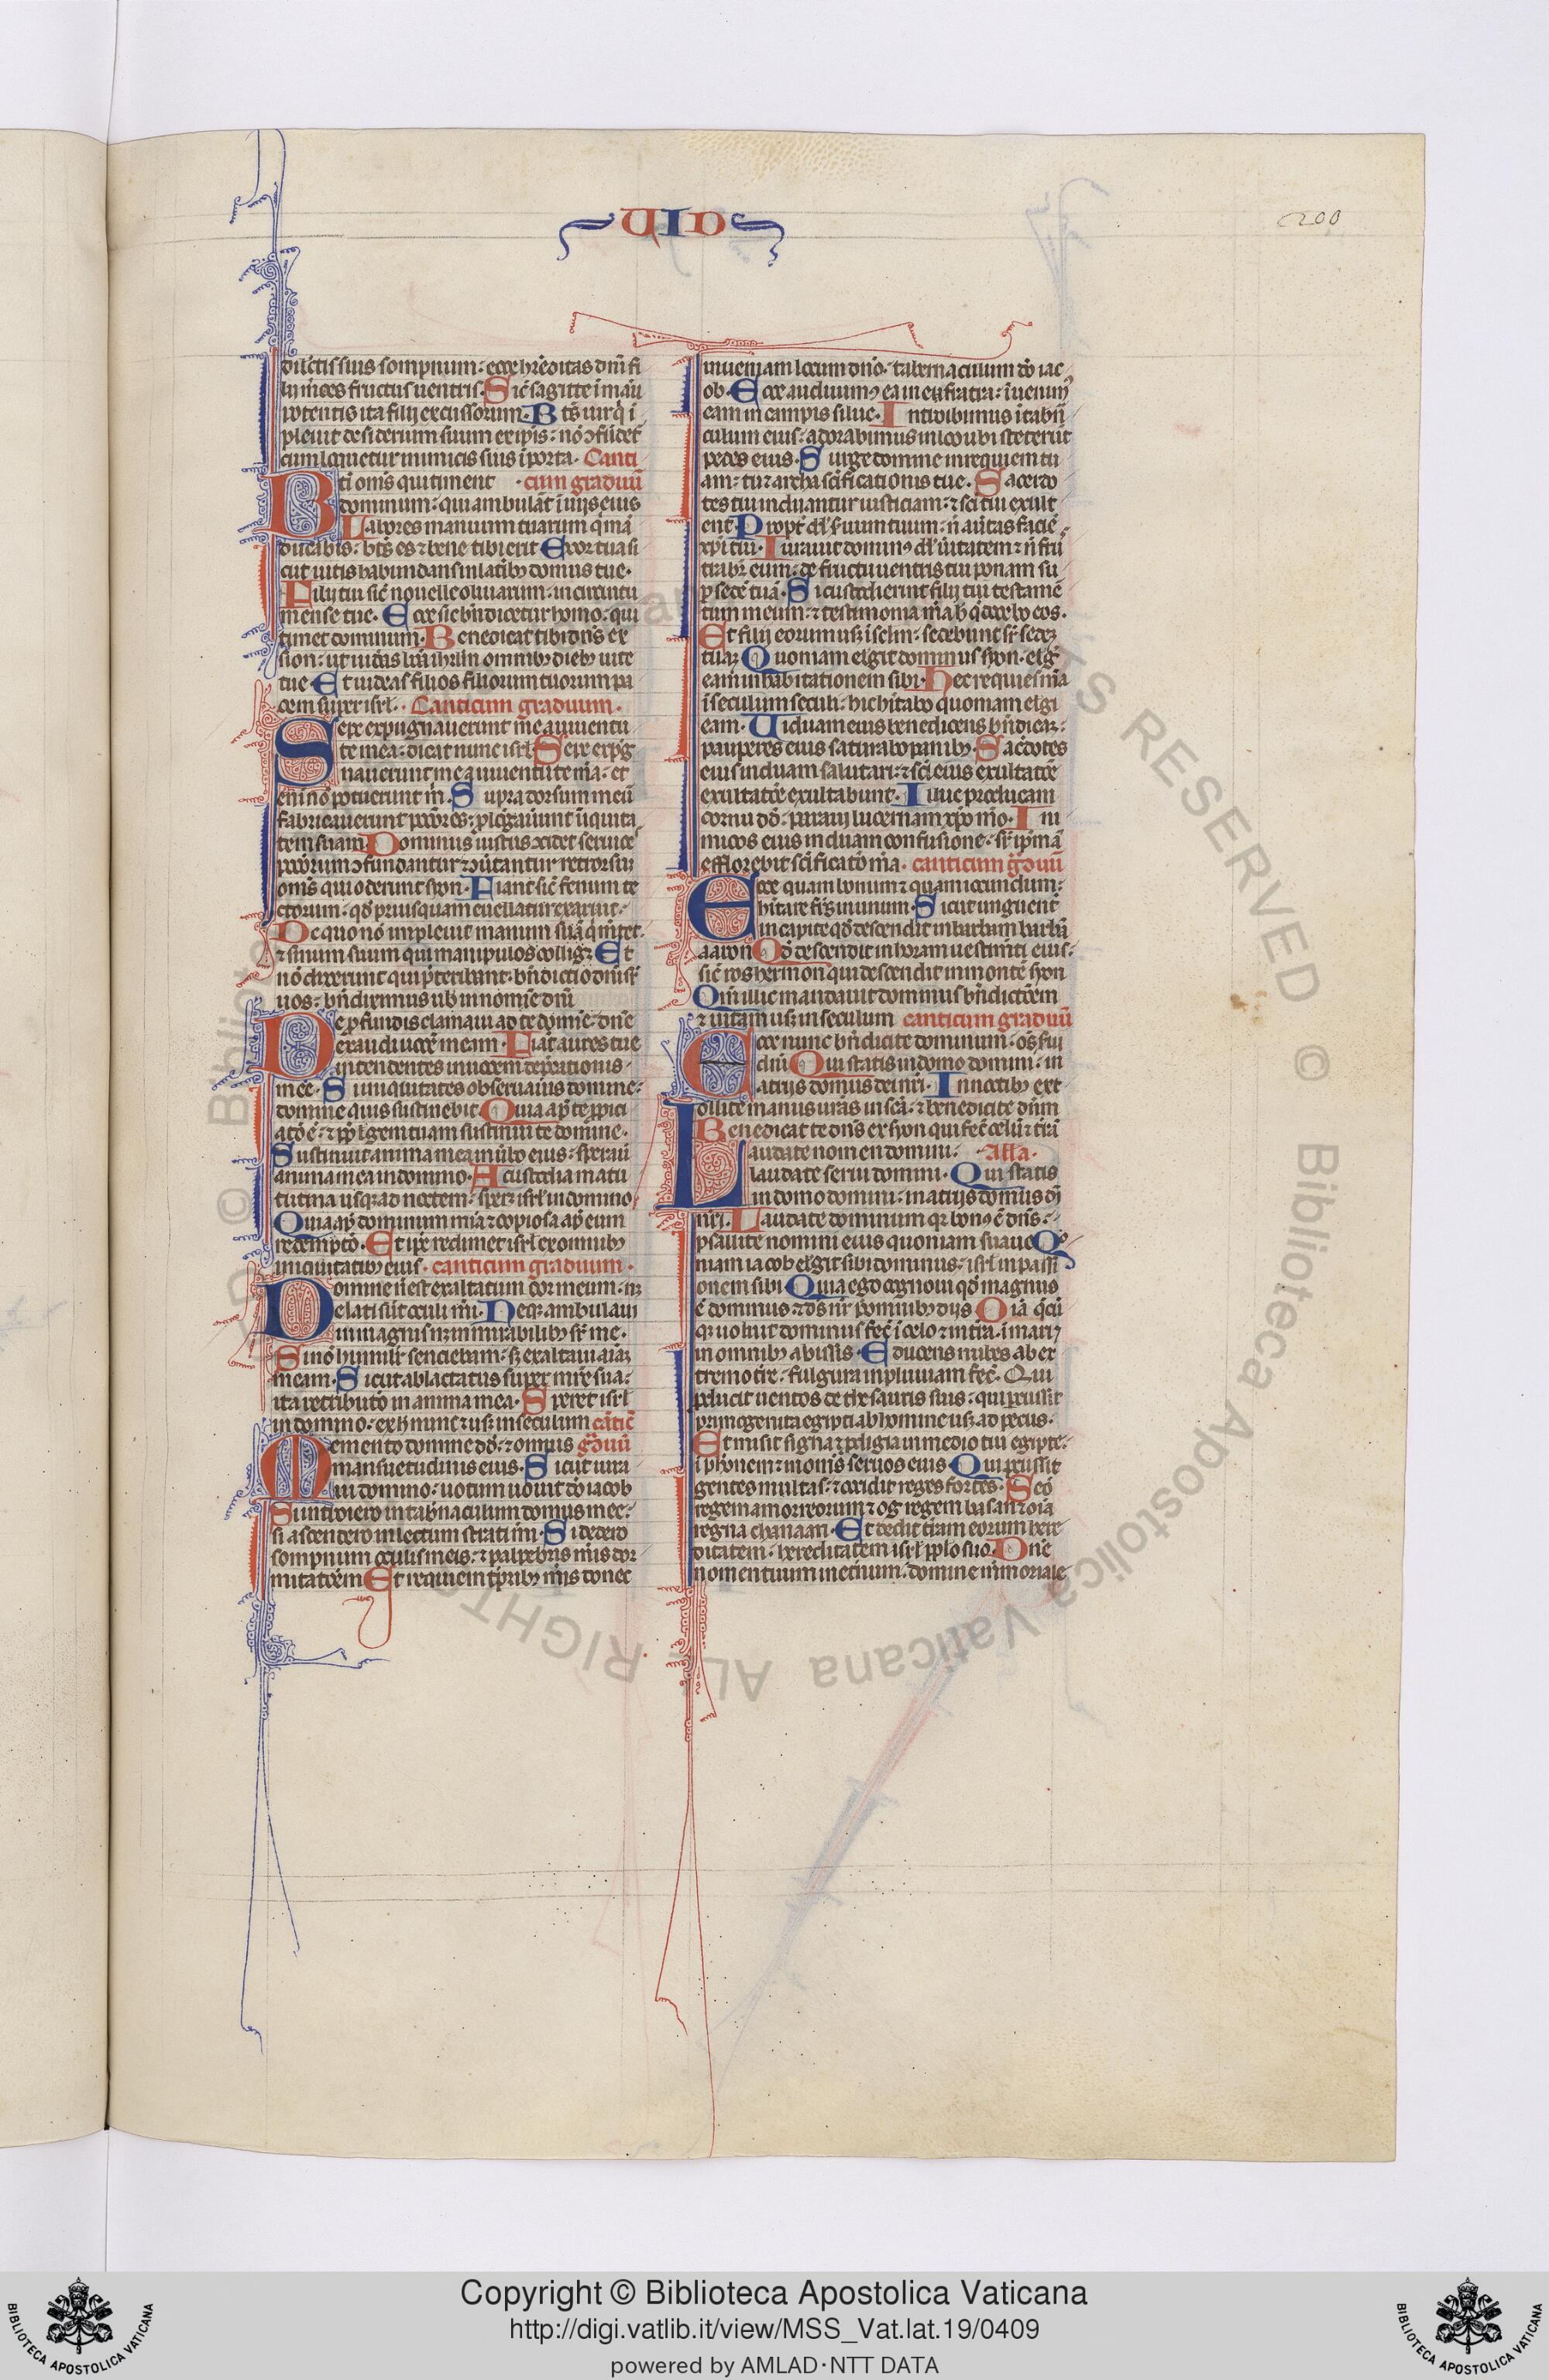 UID
200
dilectis suis sompnum: ecce hr̄editas dn̄i fi
lij m̄ces fructus uentris. Sic̄ sagitte ī manu
potentis ita filij excussorum. Bt̄s uir q̇ ī
pleuit desiderium suum ex ip̄is: nō ↄfūdet̄
cum loquetur inimicis suis ī porta. Canti
Bt̄i om̄s qui timent ·cum graduū
dominum: qui ambulāt ī uijs eius
Labores manuum tuarum q̇a mā
ducabis: bt̄s es ⁊ bene tibi erit Uxor tua si
cut uitis habundans in latib; domus tue.
Filij tui sic̄ nouelle oliuarum: in circuitu
mense tue. Ecce sic bn̄dicetur homo: qui
timet dominum. Benedicat tibi dn̄s ex
sion: ut uideas bōa ihrl̄m omnib; dieb; uite
tue Et uideas filios filiorum tuorum pa
cem super isrl̄. Canticum graduum.
Sepe expugnauerunt me a iuuentu
te mea: dicat nunc isrl̄ Sepe expūg
nauerunt me a iuuentute m̄a: et
eni nō potuerunt m̄. Supra dorsum meū
fabricauerunt pctōres: plōgauerunt īiquita
tem suam Dominus iustus ↄcidet ceruices
pctōrum ↄfundantur ⁊ ↄūtantur retrorsum
om̄s qui oderunt syon. Fiant sic̄ fenum te
ctorum: qd̄ priusquam euellatur exaruit.
De quo nō impleuit manum suā q̇ metet:
⁊ sinum suum qui manipulos collig; Et
nō dixerunt qui p̄teribant: bn̄dictio dn̄i sr̄
uos: bn̄diximus uob̄ in nomīe dn̄i
De p̄fundis clamaui ad te domīe: dn̄e
exaudi uocē meam. Fiāt aures tue
intendentes in uocem depc̄ationis
mee. Si iniquitates obseruaūis domine:
domine quis sustinebit. Quia ap̄ te ppici
atō ē: ⁊ pp̄ legem tuam sustinui te domine.
Sustinuit anima mea in ūbo eius: speraū
anima mea in domino. A custodia matu
tina usq; ad noctem: sper; isrl̄ in domino
Quia ap̄ dominum mīa ⁊ copiosa ap̄ eum
redempto. Et ipse redimet isrl̄ ex omnib;
iniquitatib; eius. canticum graduum.
Domine n̄ est exaltatum cor meum: n;
elati sūt oculi mī. Neq; ambulaui
in magnis n; in mirabilib; sr̄ me.
Si nō humilit̄ senciebam: s; exaltaui aīaȝ
meam. Sicut ablactatus super mr̄e sua:
ita retributō in anima mea. Speret isrl̄
in domino: ex h̄ nunc ⁊ us; in seculum cāticū
Memento domine dd̄: ⁊ omnis gr̄duū
mansuetudinis eius. Sicut iura
uit domino: uotum uouit dō iacob
Si introiero in tab̄naculum domus mee:
si ascendero in lectum strati mī. Si dedero
sompnum oculis meis: ⁊ palpebris m̄is dor
mitatōem Et requiem tp̄rib; m̄is donec
inueniam locum dn̄o: tabernaculum dō iac
ob. Ecce audiuim; eā in eufrata: īuenim;
eam in campis silue. Introibimus ī tab̄n
culum eius: adorabimus in loco ubi steterūt
pedes eius. Surge domine in requiem tu
am: tu ⁊ archa sc̄ificationis tue. Sacerdo
tes tui induantur iusticiam: ⁊ sc̄i tui exult
ent. Propt̄ dd̄ s̄uum tuum: n̄ aūtas faciē
xp̄i tui. Iurauit domin; dd̄ ūitatem ⁊ n̄ fru
strabit̄ eum: de fructu uentris tui ponam su
p̄ sedē tuā. Si custodierint filij tui testamē
tum meum: ⁊ testimonia m̄a h̄ q̄ docebo eos.
Et filij eorum us; ī seclm̄: sedebunt sr̄ sedeȝ
tuaȝ Quoniam elegit dominus syon: elḡ
eam in habitationem sibi. Hec requies m̄a
ī seculum seculi: hic hitabo quoniam elegi
eam. Uiduam eius benedicens bn̄dicam:
pauperes eius saturabo panib;. Sac̄dotes
eius induam salutari: ⁊ sc̄i eius exultatōe
exultatōe exultabunt. Illuc producam
cornu dd̄: paraui lucernam xp̄o mō. Ini
micos eius induam confusione: sr̄ ip̄m ā
efflorebit sc̄ificatō m̄a. canticum gr̄duū
Ecce quam bonum ⁊ quam iocundum:
hitare fr̄es in unum. Sicut unguent̄
in capite qd̄ descendit in barbam barbā
aaron Qd̄ descendit in horam uestim̄ti eius:
sic̄ ros hermon qui descendit in monte syon
Qm̄ illic mandauit dominus bn̄dictōem
⁊ uitam us; in seculum canticum graduū
Ecce nunc bn̄dicite dominum: om̄s s̄ui
dn̄i Qui statis in domo domini: in
atrijs domus dei nr̄i. In noctib; ext
ollite manus uras in scā: ⁊ benedicite dn̄m
Benedicat te dn̄s ex syon qui fec̄ celū ⁊ tr̄ā
Laudate nomen domini: Alla.
laudate serui domini. Qui statis
in domo domini: in atrijs domus dī
nr̄i. Laudate dominum q; bon; ē dn̄s:
psallite nomini eius quoniam suaue Qō
niam iacob elegit sibi dominus: isrl̄ in possessi
onem sibi Quia ego cognoui qd̄ magnus
ē dominus ⁊ ds̄ nr̄ p̄ omnib; dijs Oīa q̄cū
q; uoluit dominus fec̄ ī celo ⁊ in tr̄a: ī mari ⁊
in omnib; abissis. Educens nubes ab ex
tremo tr̄e: fulgura in pluuiam fec̄. Qui
producit uentos de thesauris suis: qui percussit
primogenita egipti ab homine us; ad pecus.
Et misit signa ⁊ prodigia in medio tui egipte:
ī pharaonem ⁊ in om̄s seruos eius Qui percussit
gentes multas: ⁊ occidit reges fortes. Seō
regem amorreorum ⁊ og regem basan ⁊ oīa
regna chanaan. Et dedit tr̄am eorum here
ditatem: hereditatem isrl̄ pplo suo. Dn̄e
nomen tuum in et̄num: domine memoriale
Copyright © Biblioteca Apostolica Vaticana
http://digi.vatlib.it/view/MSS_Vat.lat.19/0409
powered by AMLAD·NTT DATA
BIBLIOTECA APOSTOLICA VATICANA
BIBLIOTECA APOSTOLICA VATICANA